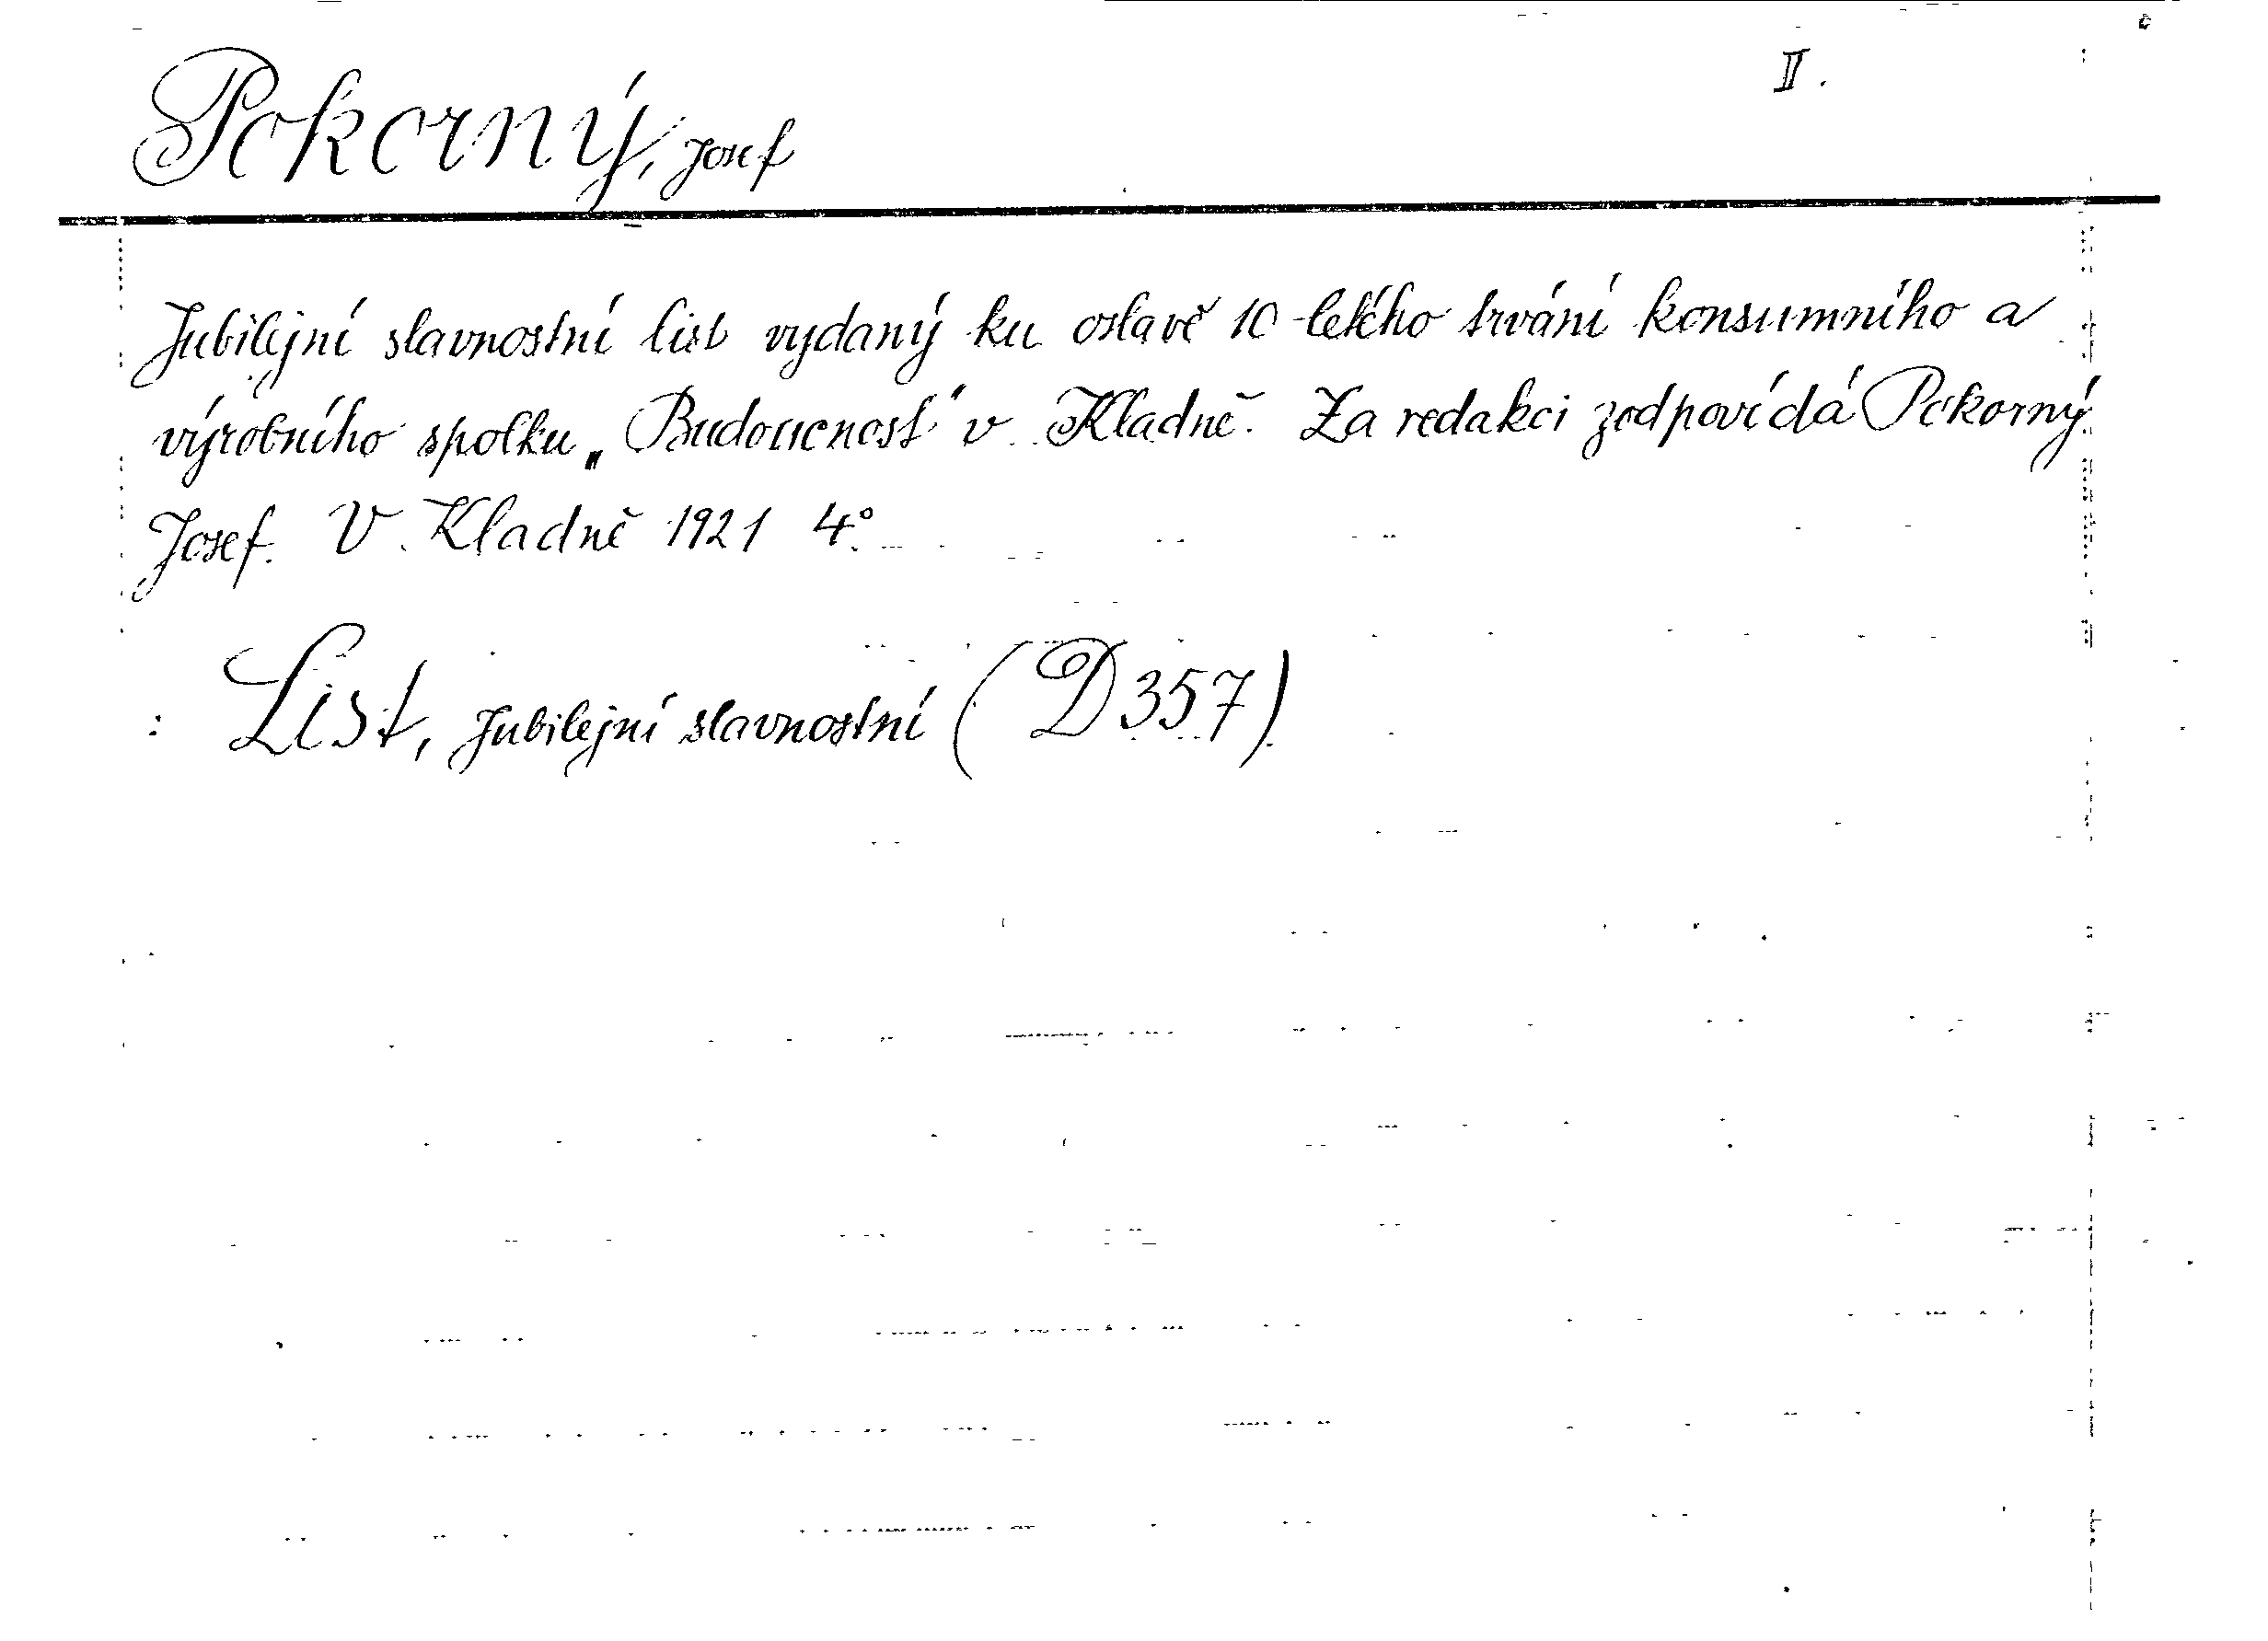 II.
Pokorný, Josef
Jubilejní slavnostní list vydaný ku oslavě 10-letého trvání konsumního a
výrobního spolku „Budoucnost" v Kladně. Za redakci zodpovídá Pokorný
Josef. V Kladně 1921 4°.
: List, jubilejní slavnostní (D 357)